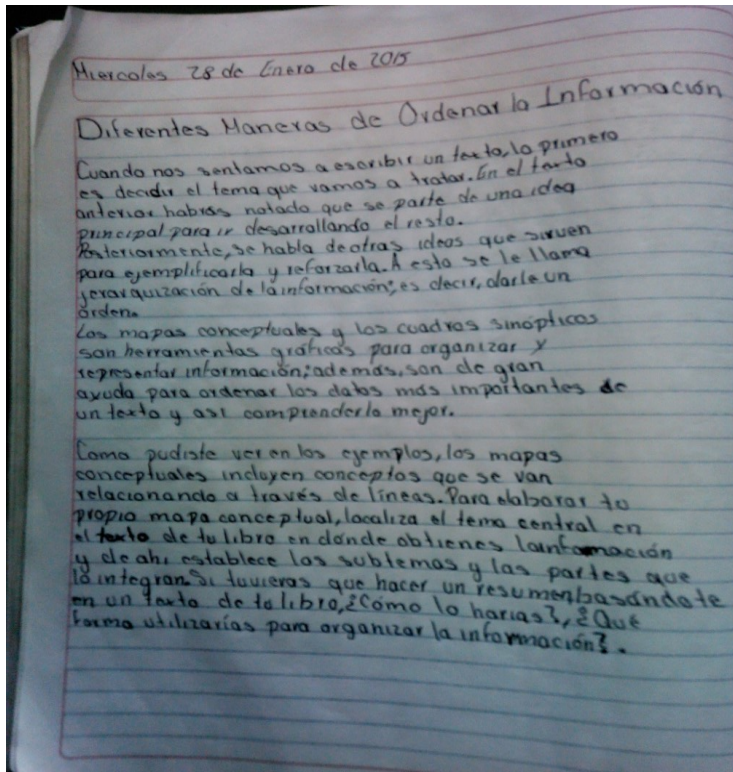 Miercoles 28 de Enero de 2015
Diferentes Maneras de Ordenar la Información
Cuando nos sentamos a escribir un texto, lo primero
es decidir el tema que vamos a tratar. En el texto
anterior habrás notado que se parte de una idea
principal para ir desarrollando el resto.
Posteriormente, se habla de otras ideas que sirven
para ejemplificarla y reforzarla. A esto se le llama
jerarquización de la información; es decir, darle un
órden.
Los mapas conceptuales y los cuadros sinópticos
son herramientas gráficas para organizar y
representar información; además, son de gran
ayuda para ordenar los datos más importantes de
un texto y asi comprenderlo mejor.
Como pudiste ver en los ejemplos, los mapas
conceptuales incluyen conceptos que se van
relacionando a través de líneas. Para elaborar tu
propio mapa conceptual, localiza el tema central en
el texto de tu libro en dónde obtienes la información
y de ahi establece los subtemas y las partes que
lo integran. Si tuvieras que hacer un resumen basándote
en un texto de tu libro, ¿Cómo lo harias?, ¿Qué
forma utilizarías para organizar la información?.